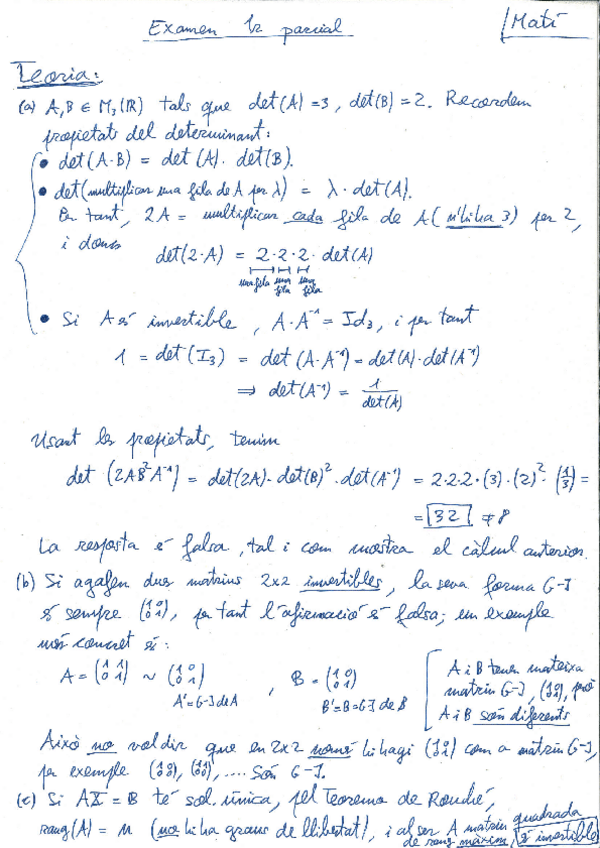 Examen 1r parcial
Matí
Teoria:
(a) A,B ∈ M₃(ℝ) tals que det(A)=3, det(B)=2. Recordem
propietats del determinant:
• det(A·B) = det(A)·det(B).
• det(multiplicar una fila de A per λ) = λ·det(A).
Per tant, 2A = multiplicar cada fila de A (n'hi ha 3) per 2,
i doncs
det(2·A) = 2·2·2·det(A)
una fila una fila una fila
• Si A és invertible, A·A⁻¹ = Id₃, i per tant
1 = det(I₃) = det(A·A⁻¹) = det(A)·det(A⁻¹)
⇒ det(A⁻¹) = 1/det(A)
Usant les propietats, tenim
det(2AB²A⁻¹) = det(2A)·det(B)²·det(A⁻¹) = 2·2·2·(3)·(2)²·(1/3) =
= 32 ≠ 8
La resposta és falsa, tal i com mostra el càlcul anterior.
(b) Si agafem dues matrius 2x2 invertibles, la seva forma G-J
és sempre (1 0 / 0 1), per tant l'afirmació és falsa; un exemple
més concret és:
A = (1 1 / 0 1) ~ (1 0 / 0 1), B = (1 0 / 0 1)
A'=G-J de A
B'=B=G-J de B
A i B tenen mateixa
matriu G-J, (1 0 / 0 1), però
A i B són diferents
Això no vol dir que en 2x2 només hi hagi (1 0 / 0 1) com a matriu G-J,
per exemple .... Són G-J.
(c) Si AX = B té sol. única, pel Teorema de Rouché,
rang(A) = n (no hi ha graus de llibertat), i al ser A matriu quadrada
de rang màxim, és invertible